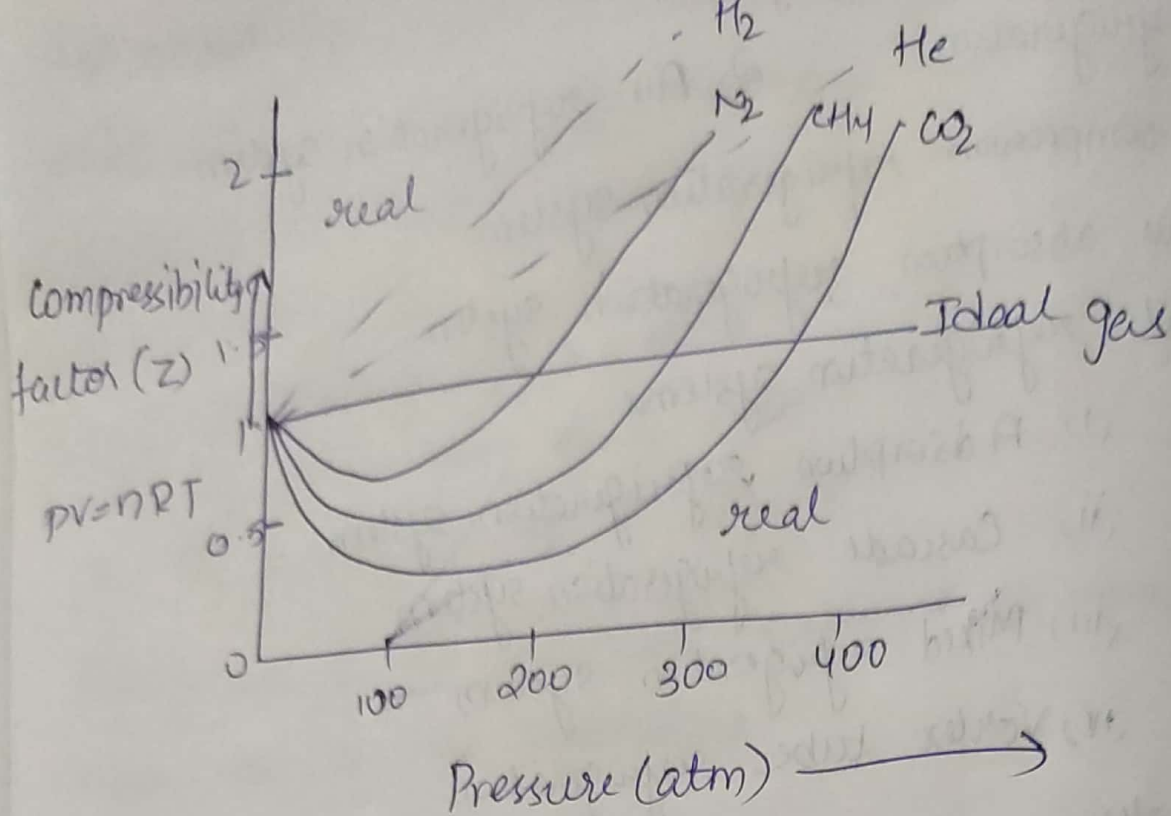 H2
He
N2
CH4
CO2
2
real
Compressibility
factor (Z)
1.5
Ideal gas
1
PV=nRT
0.5
real
0
100
200
300
400
Pressure (atm)